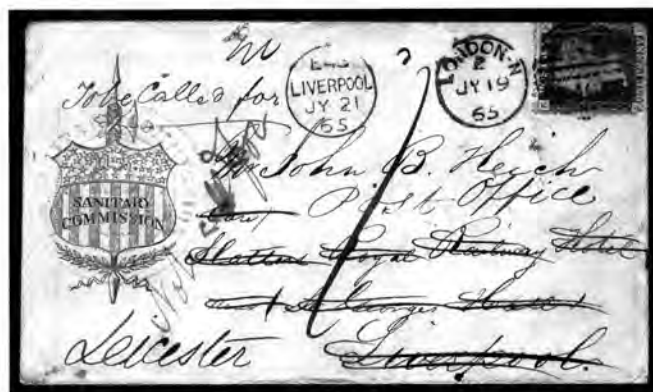 To be Called for
LIVERPOOL
JY 21
65
LONDON-N
Z
JY 19
65
SANITARY
COMMISSION
Mr John B. Heich
Post Office
Care
Royal Railway Hotel
St Georges
Liverpool.
Leicester